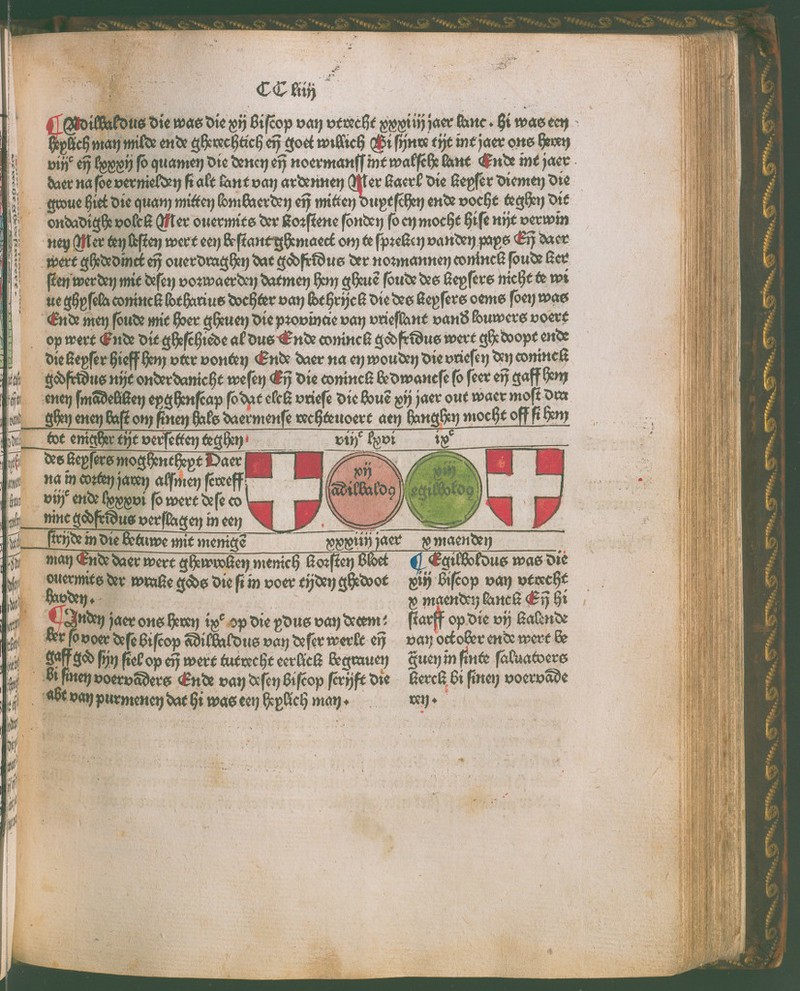 CC liiij
¶ Adilbaldus die was die xij biscop van vtrecht xxxiiij jaer lanc. hi was een
heylich man milde ende gherechtich eñ goet willich Bi sijnre tijt int jaer ons heren
viijc eñ lxxxij so quamen die denen eñ noermans int walsche lant Ende int jaer
daer na soe vernielden si alt lant van ardennen Mer kaerl die keyser diemen die
groue hiet die quam mitten lombaerden eñ mitten duytschen ende vocht teghen dit
ondadighe volck Mer ouermits der korstene sonden so en mocht hise nijt verwin
nen Mer ten lesten wert een bestant ghemaect om te spreken vanden pays Eñ daer
wert ghededinct eñ ouerdraghen dat godfridus der normannen coninck soude ker
sten werden mit desen voorwaerden datmen hem gheuē soude des keysers nichte te wi
ue ghysela coninck lotharius dochter van lothrijck die des keysers oems soen was
Ende men soude mit hoer gheuen die prouincie van vrieslant vand louwers voert
op wert Ende dit gheschiede al dus Ende coninck godfridus wert ghedoopt ende
die keyser hieff hem vter vonten Ende daer na en wouden die vriesen den coninck
godfridus nijt onderdanicht wesen Eñ die coninck bedwancse so seer eñ gaff hem
enen smadeliken eyghenscap so dat elck vriese die bouē xij jaer out waer most dra
ghen enen bast om sinen hals daermense rechteuoert aen hanghen mocht off si hem
tot enigher tijt versetten teghen
viijc lxvi
ixc
des keysers moghentheyt Daer
na in corten jaren alsmen screeff
viijc ende lxxxvi so wert dese co
ninc godfridus verslagen in een
xij
adilbaldꝰ
xiij
egilboldꝰ
strijde in die betuwe mit menigē
xxxiiij jaer
x maenden
man Ende daer wert ghewroken menich korsten bloet
ouermits der wrake gods die si in voer tijden ghedoot
hadden.
¶ Inden jaer ons heren ixc op die ydus van decem:
ber so voer dese biscop adilbaldus van deser werlt eñ
gaff god sijn siel op eñ wert tutrecht eerlick begrauen
bi sinen voervāders Ende van desen biscop scrijft die
abt van purmenen dat hi was een heylich man.
¶ Egilboldus was die
xiij biscop van vtrecht
x maenden lanck Eñ hi
starff op die vij kalende
van october ende wert be
gūen in sinte saluatoers
kerck bi sinen voervāde
ren.